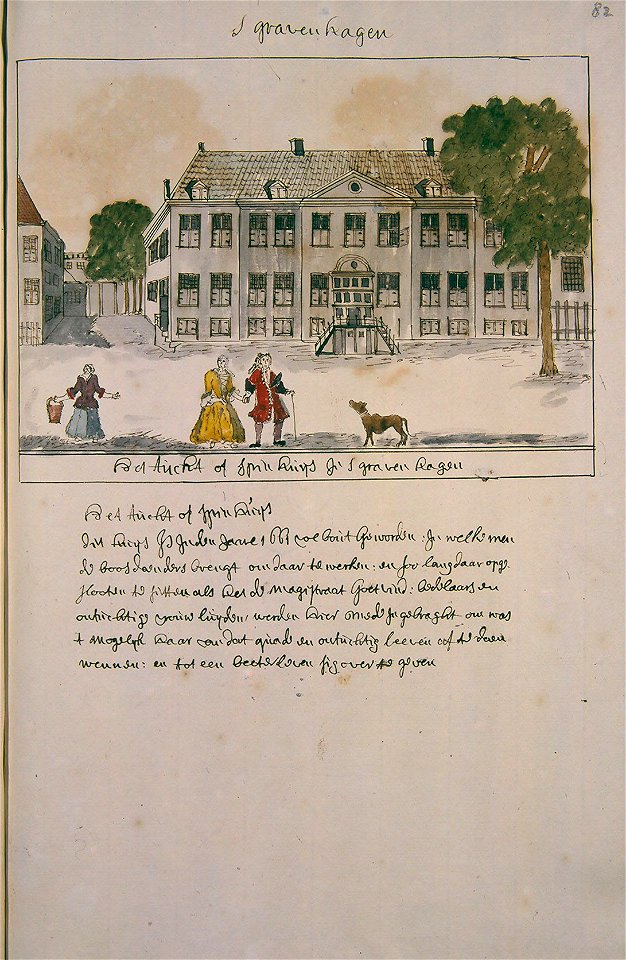 82
S gravenhagen
Het tucht of spin huijs In S gravenhagen
Het tucht of spin huijs
dit huijs Is Inden Jaare 1661 volbout geworden: In welke men
de boosdoenders brengt om daar te werken: en soo lang daar opge
slooten te sitten als het de magistraat Goet vind: bedelaars en
ontuchtige vrouwluijden werden hier mede In gebraght om was
t mogelyk haar van dat quade en ontuchtig leeven af te doen
wennen: en tot een beeter leven sig over te geven